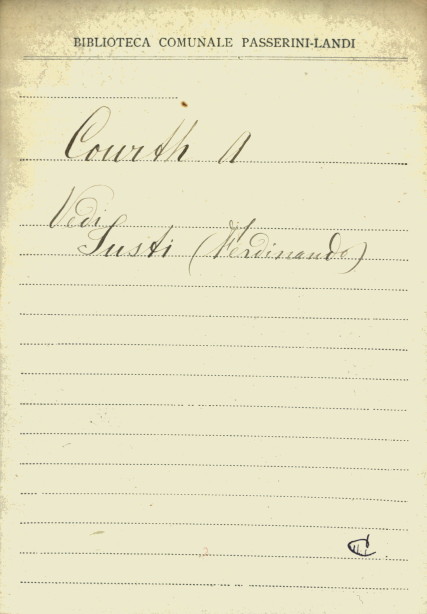 BIBLIOTECA COMUNALE PASSERINI-LANDI
Courth A
Vedi
Justi (Ferdinando)